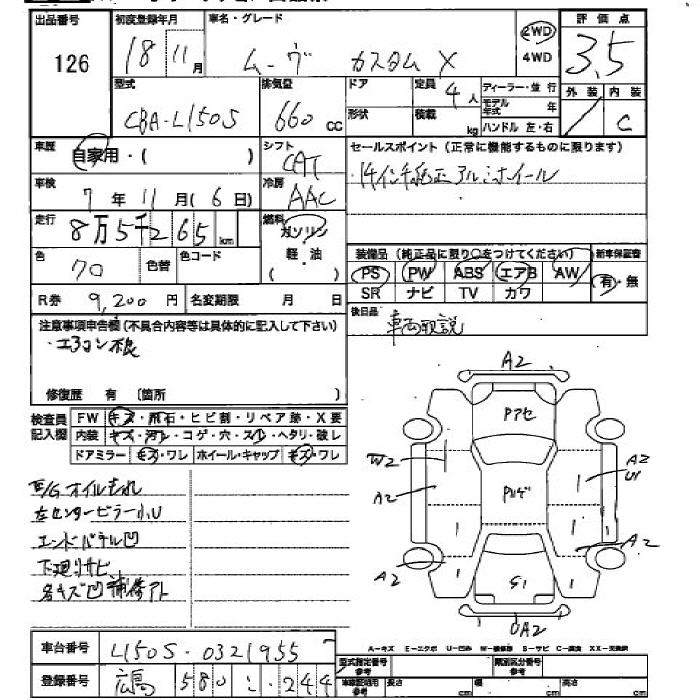 出品番号
126
初度登録年月
18年11月
車名・グレード
ムーヴ カスタム X
2WD
4WD
評価点
3.5
外装 内装
C
型式
CBA-L150S
排気量
660 cc
ドア
形状
定員
4人
積載
kg
ディーラー・並行
モデル年式 年
ハンドル 左・右
車歴
自家用・( )
シフト
CAT
冷房
AAC
車検
7年11月(6日)
走行
8万5千265km
燃料
ガソリン
軽・油
( )
色
クロ
色替
色コード
R券 9,200円
名変期限 月 日
セールスポイント(正常に機能するものに限ります)
14インチ純正アルミホイール
装備品(純正品に限り○をつけてください)
新車保証書
PS PW ABS エアB AW
SR ナビ TV カワ
有・無
後日品
車両取説
注意事項申告欄(不具合内容等は具体的に記入して下さい)
・エアコン不良
修復歴 有 〔箇所 〕
検査員記入欄
FW キズ・飛石・ヒビ割・リペア跡・X要
内装 キズ・汚レ・コゲ・穴・スレ・ヘタリ・破レ
ドアミラー キズ・ワレ ホイール・キャップ キズ・ワレ
E/Gオイルもれ
左センターピラー小U
エンドパネル凹
下廻りサビ
各キズ凹補修アト
A2
Pアセ
W2
A2
A2
U1
A2
A2
G1
A2
A-キズ E-エクボ U-凹み W-補修跡 S-サビ C-腐食 XX-交換済
車台番号 L150S-0321955
登録番号 広島 580 244
型式指定番号 参考
類別区分番号 参考
車庫証明用 参考
長さ cm
幅 cm
高さ cm